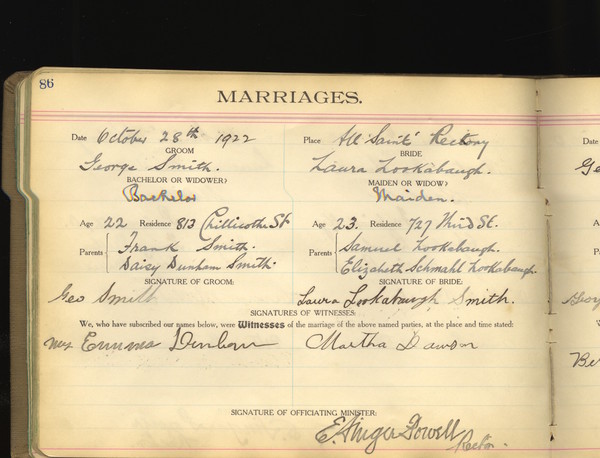 86
MARRIAGES.
Date October 28th 1922 Place All Saints' Rectory
GROOM BRIDE
George Smith. Laura Lookabaugh.
BACHELOR OR WIDOWER? MAIDEN OR WIDOW?
Bachelor Maiden.
Age 22 Residence 813 Chillicothe St Age 23. Residence 727 Third St.
Parents Frank Smith. Parents Samuel Lookabaugh.
Daisy Dunham Smith. Elizabeth Schmahl Lookabaugh.
SIGNATURE OF GROOM: SIGNATURE OF BRIDE:
Geo Smith Laura Lookabaugh Smith.
SIGNATURES OF WITNESSES:
We, who have subscribed our names below, were Witnesses of the marriage of the above named parties, at the place and time stated:
Mrs Emma Martha Dawson
SIGNATURE OF OFFICIATING MINISTER:
E. Powell
Rector.
Date